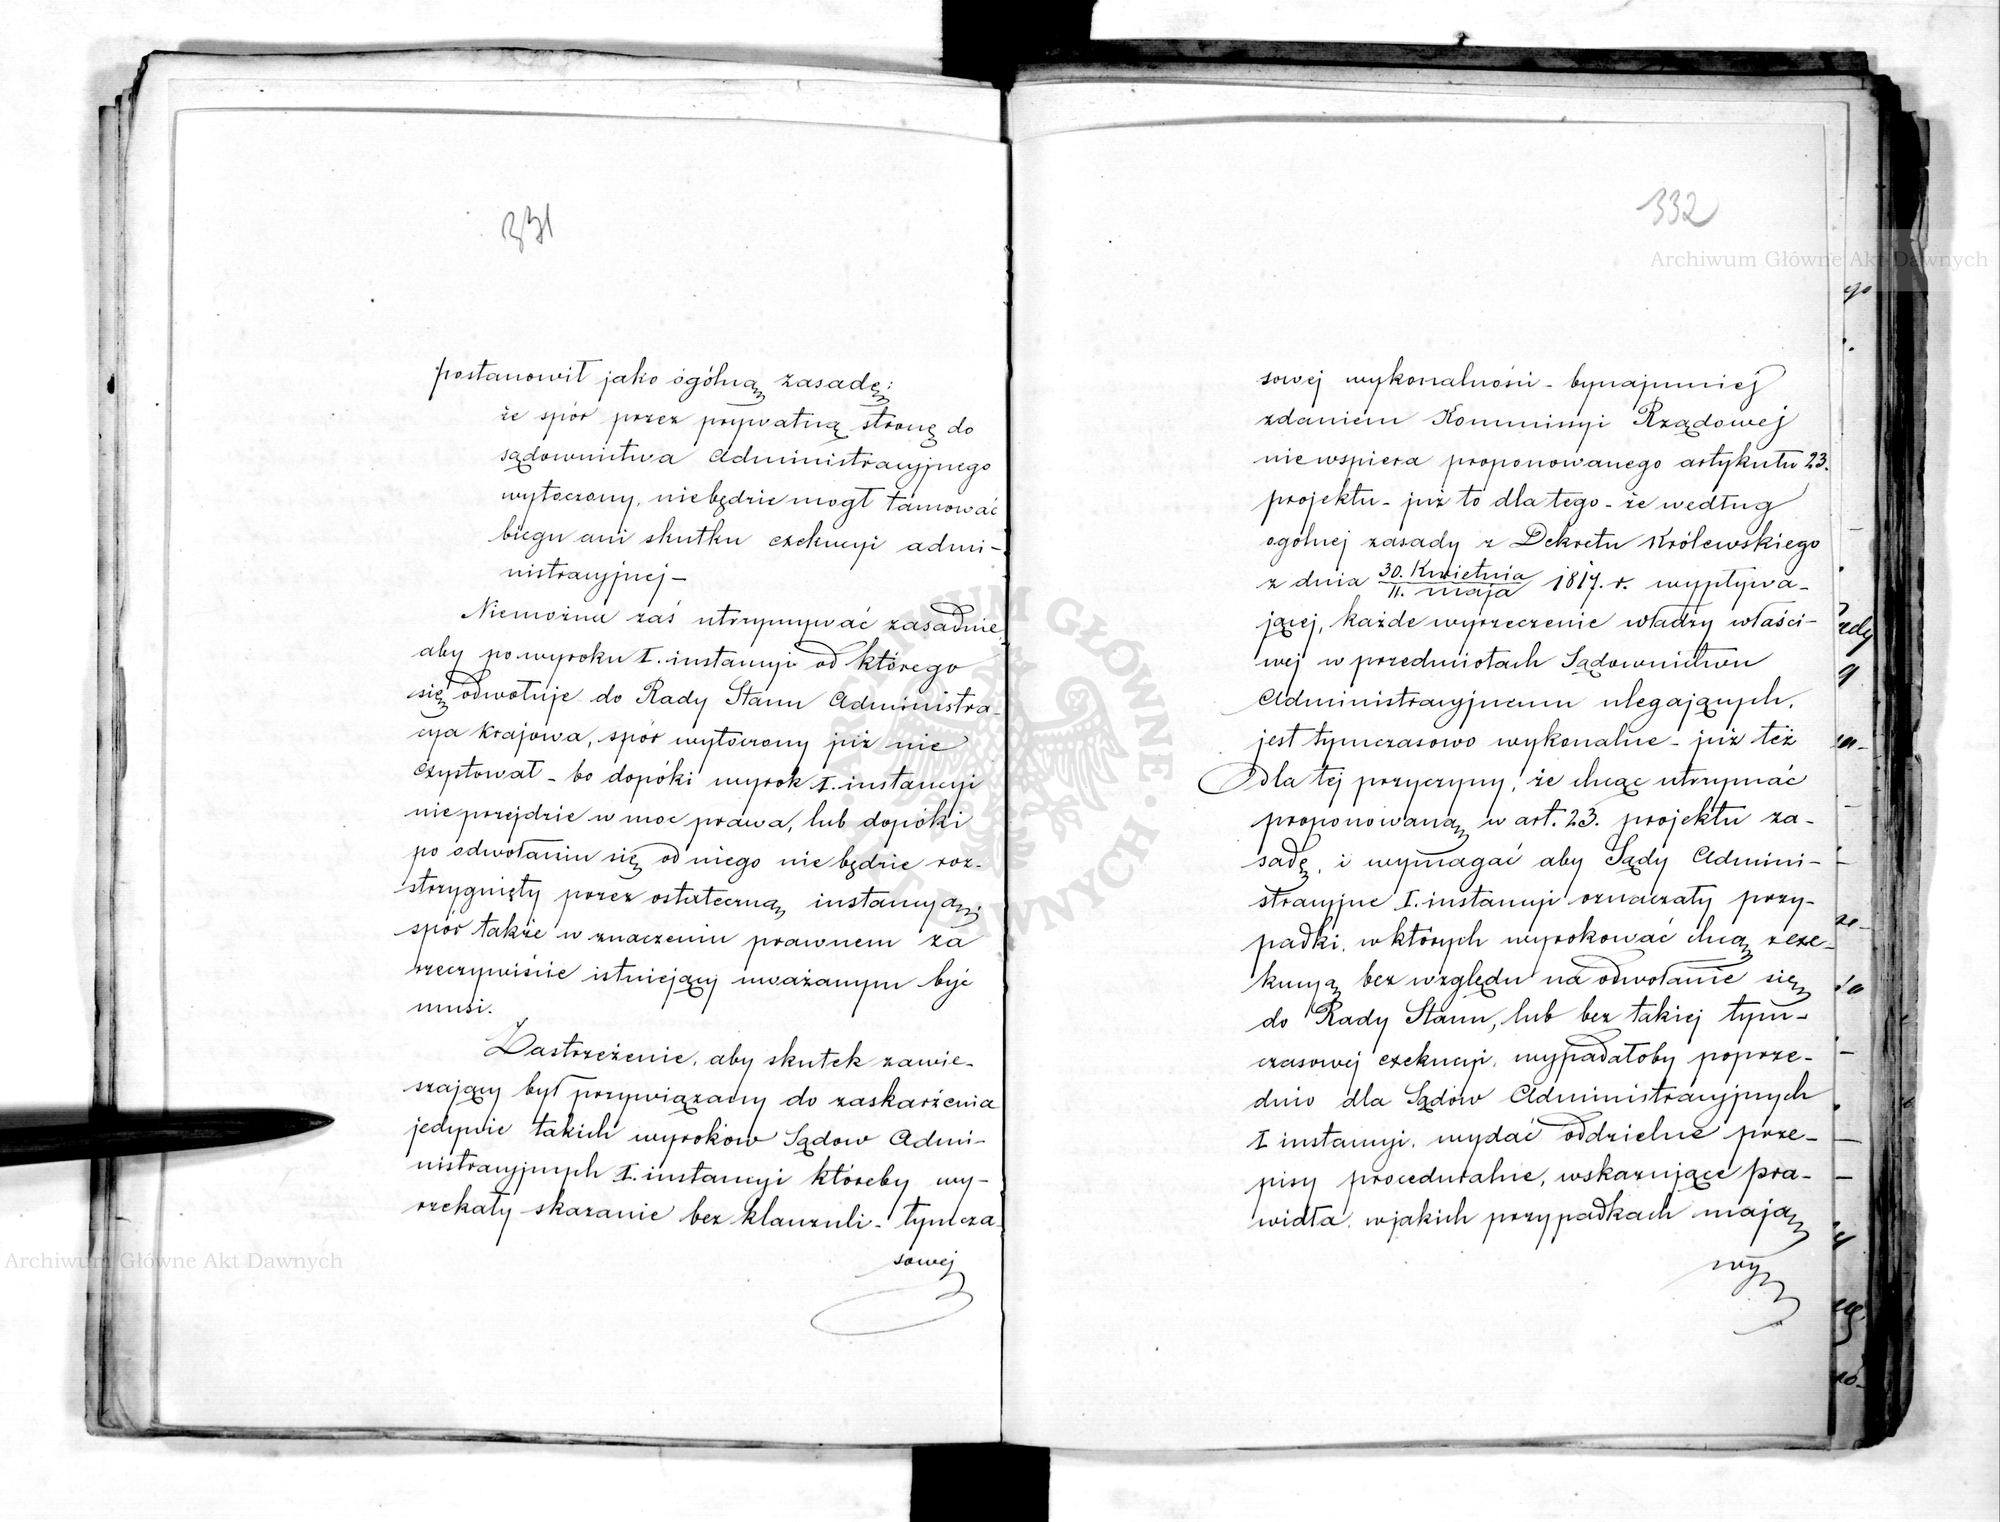 331
postanowił jako ogólną zasadę:
że spór przez prywatną stronę do
sądownictwa Administracyjnego
wytoczony, niebędzie mogł tamować
biegu ani skutku exekucyi admi-
nistracyjnej -
Niemożna zaś utrzymywać zasadnie
aby po wyroku I. instancyi od którego
się odwołuje do Rady Stanu Administra-
cya krajowa, spór wytoczony już nie
exystował - bo dopóki wyrok I. instancyi
nie przejdzie w moc prawa, lub dopóki
po odwołaniu się od niego nie będzie roz-
strzygnięty przez ostateczną instancyą,
spór także w znaczeniu prawnem za
rzeczywiście istniejący uważanym być
musi.
Zastrzeżenie, aby skutek zawie-
szający był przywiązany do zaskarżenia
jedynie takich wyroków Sądow Admi-
nistracyjnych I. instancyi któreby wy-
rzekały skazanie bez klauzuli - tymcza-
sowej
332
sowej wykonalności - bynajmniej
zdaniem Kommissyi Rządowej
niewspiera proponowanego artykułu 23.
projektu - już to dla tego - że według
ogólnej zasady z Dekretu Królewskiego
z dnia 30. Kwietnia / 11. maja 1817. r. wypływa-
jącej, każde wyrzeczenie władzy właści-
wej w przedmiotach Sądownictwu
Administracyjnemu ulegających,
jest tymczasowo wykonalne - już też
dla tej przyczyny, że chcąc utrzymać
proponowaną w art. 23. projektu za-
sadę, i wymagać aby Sądy Admini-
stracyjne I. instancyi oznaczały przy-
padki, w których wyrokować chcą z exe-
kucyą bez względu na odwołanie się
do Rady Stanu, lub bez takiej tym-
czasowej exekucyi, wypadałoby poprze-
dnio dla Sądów Administracyjnych
I instancyi, wydać oddzielne prze-
pisy proceduralne, wskazujące pra-
widła, w jakich przypadkach mają
wy
Archiwum Główne Akt Dawnych
Archiwum Główne Akt Dawnych
ARCHIWUM GŁÓWNE AKT DAWNYCH